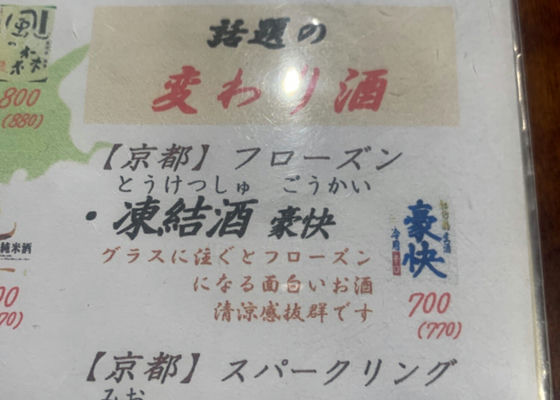 話題の
変わり酒
風の森
800
(880)
【京都】フローズン
とうけつしゅ ごうかい
・凍結酒 豪快
グラスに注ぐとフローズン
になる面白いお酒
清涼感抜群です
豪快
冷用
700
(770)
純米酒
00
70)
【京都】スパークリング
みお